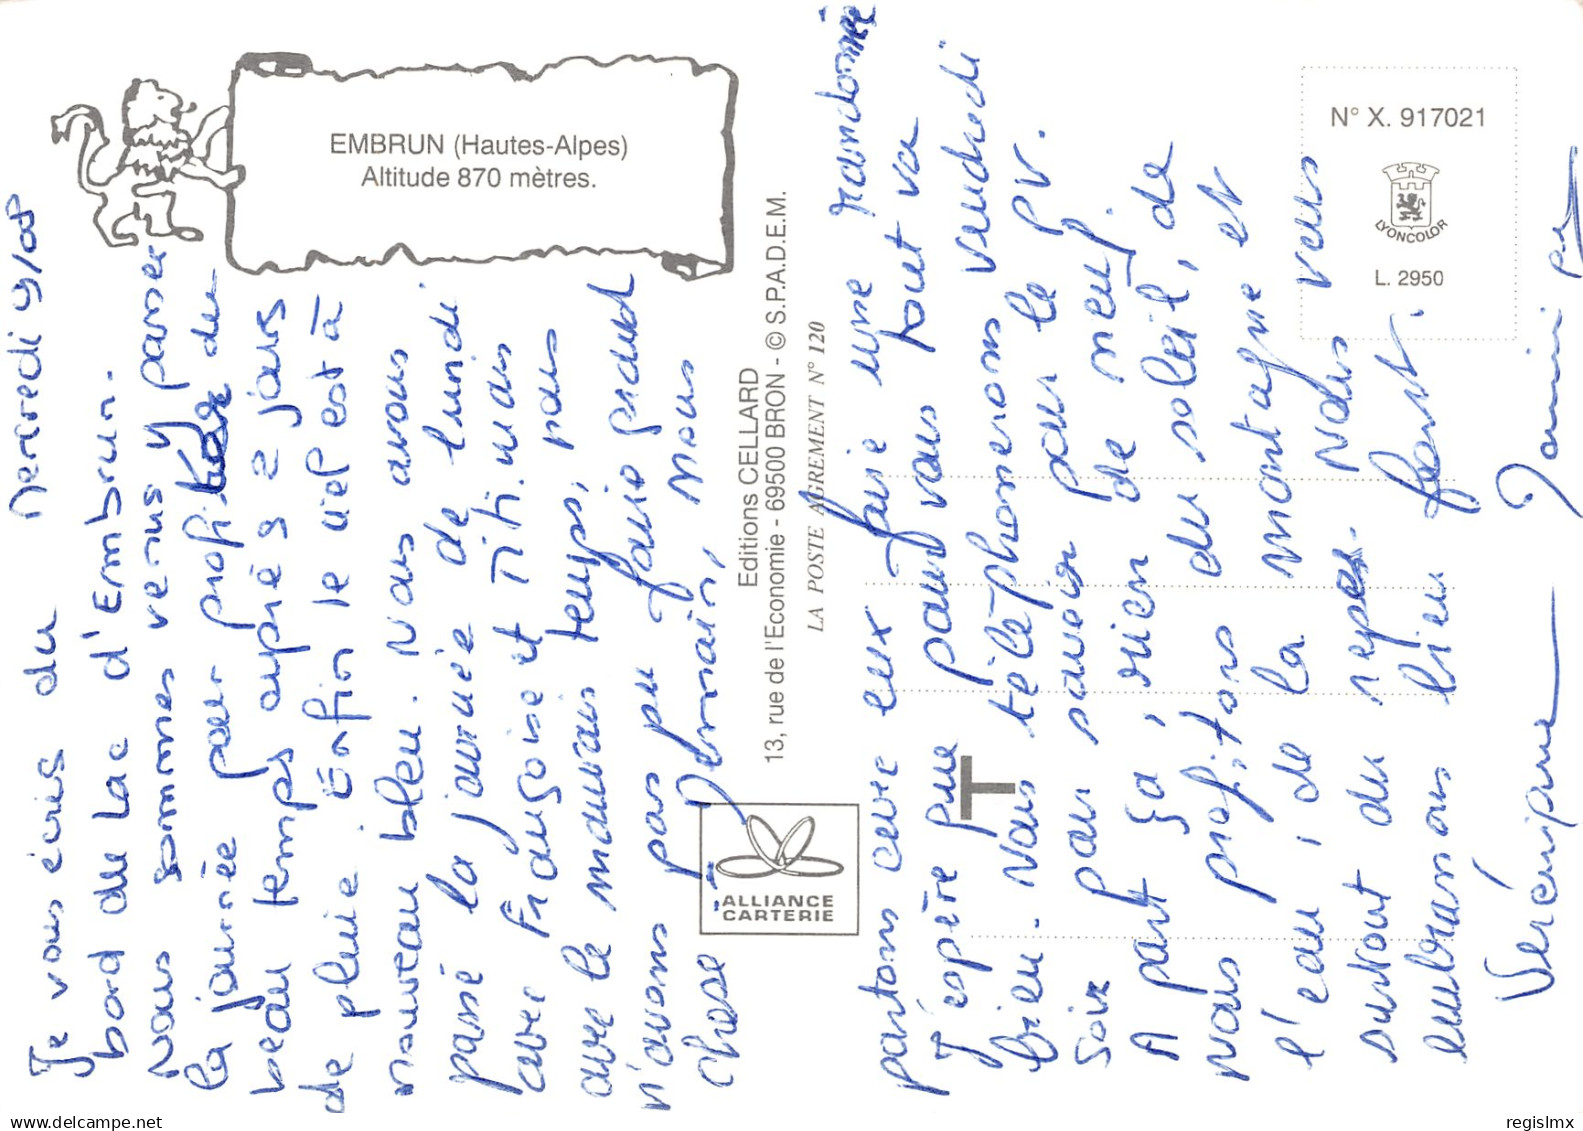 EMBRUN (Hautes-Alpes)
Altitude 870 mètres.
Editions CELLARD
13, rue de l'Economie - 69500 BRON - © S.P.A.D.E.M.
LA POSTE AGREMENT N° 120
ALLIANCE
CARTERIE
N° X. 917021
LYONCOLOR
L. 2950
Mercredi 9/08
Je vous écris du
bord du Lac d'Embrun.
Nous sommes venus y passer
la journée pour profiter du
beau temps après 2 jours
de pluie. Enfin le ciel est à
nouveau bleu. Nous avons
passé la journée de lundi
avec Françoise et Titi. mais
avec le mauvais temps, nous
n'avons pas pu faire grand
chose. Demain, nous
partons avec eux faire une randonnée
J'espère que pour vous tout va
bien. Nous téléphonerons vendredi
soir pour savoir pour le PV.
A part ça, rien de neuf.
Nous profitons du soleil, de
l'eau, de la montagne et
surtout du repos. Nous vous
embrassons bien fort.
Véronique